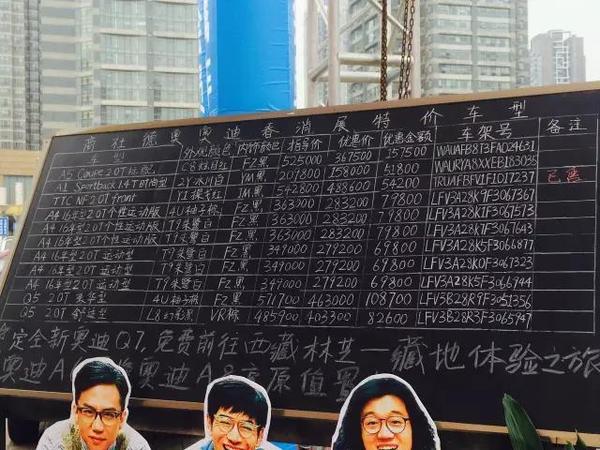 商社德奥奥迪春消展特价车型
车型 外观颜色 内饰颜色 指导价 优惠价 优惠金额 车架号 备注
A5 Coupe 2.0T FZ黑 525000 367500 157500 WAUAFB8T3FA024631
A1 Sportback 1.4T时尚型 2Y冰川白 YM黑 158000 51800 WAURYA8XXEB183035
TTC NF 2.0T front Y1探戈红 1M黑 542800 488600 54200 TRUAFBFV1F1D17237 已售
A4 16年型2.0T个性运动版 4U柚子棕 FZ黑 363000 283200 79800 LFV3A28K9F3067367
A4 16年型2.0T个性运动版 T9朱鹭白 FZ黑 363000 283200 79800 LFV3A28K1F3067573
A4 16年型2.0T个性运动版 T9朱鹭白 FZ黑 363000 283200 79800 LFV3A28K7F3067643
A4 16年型 2.0T 运动型 T9朱鹭白 FZ黑 349000 279200 69800 LFV3A28K5F3066877
A4 16年型 2.0T 运动型 T9朱鹭白 FZ黑 349000 279200 69800 LFV3A28K0F3067323
A4 16年型 2.0T 运动型 T9朱鹭白 FZ黑 349000 279200 69800 LFV3A28K5F3066944
Q5 2.0T 豪华型 4U柚子棕 FZ黑 571700 463000 108700 LFV5B28R9F3051356
Q5 2.0T 舒适型 L8幻影黑 VR棕 485900 403300 82600 LFV3B28R3F3065947
定全新奥迪Q7,免费前往西藏林芝—藏地体验之旅
奥迪A 奥迪A8高原值